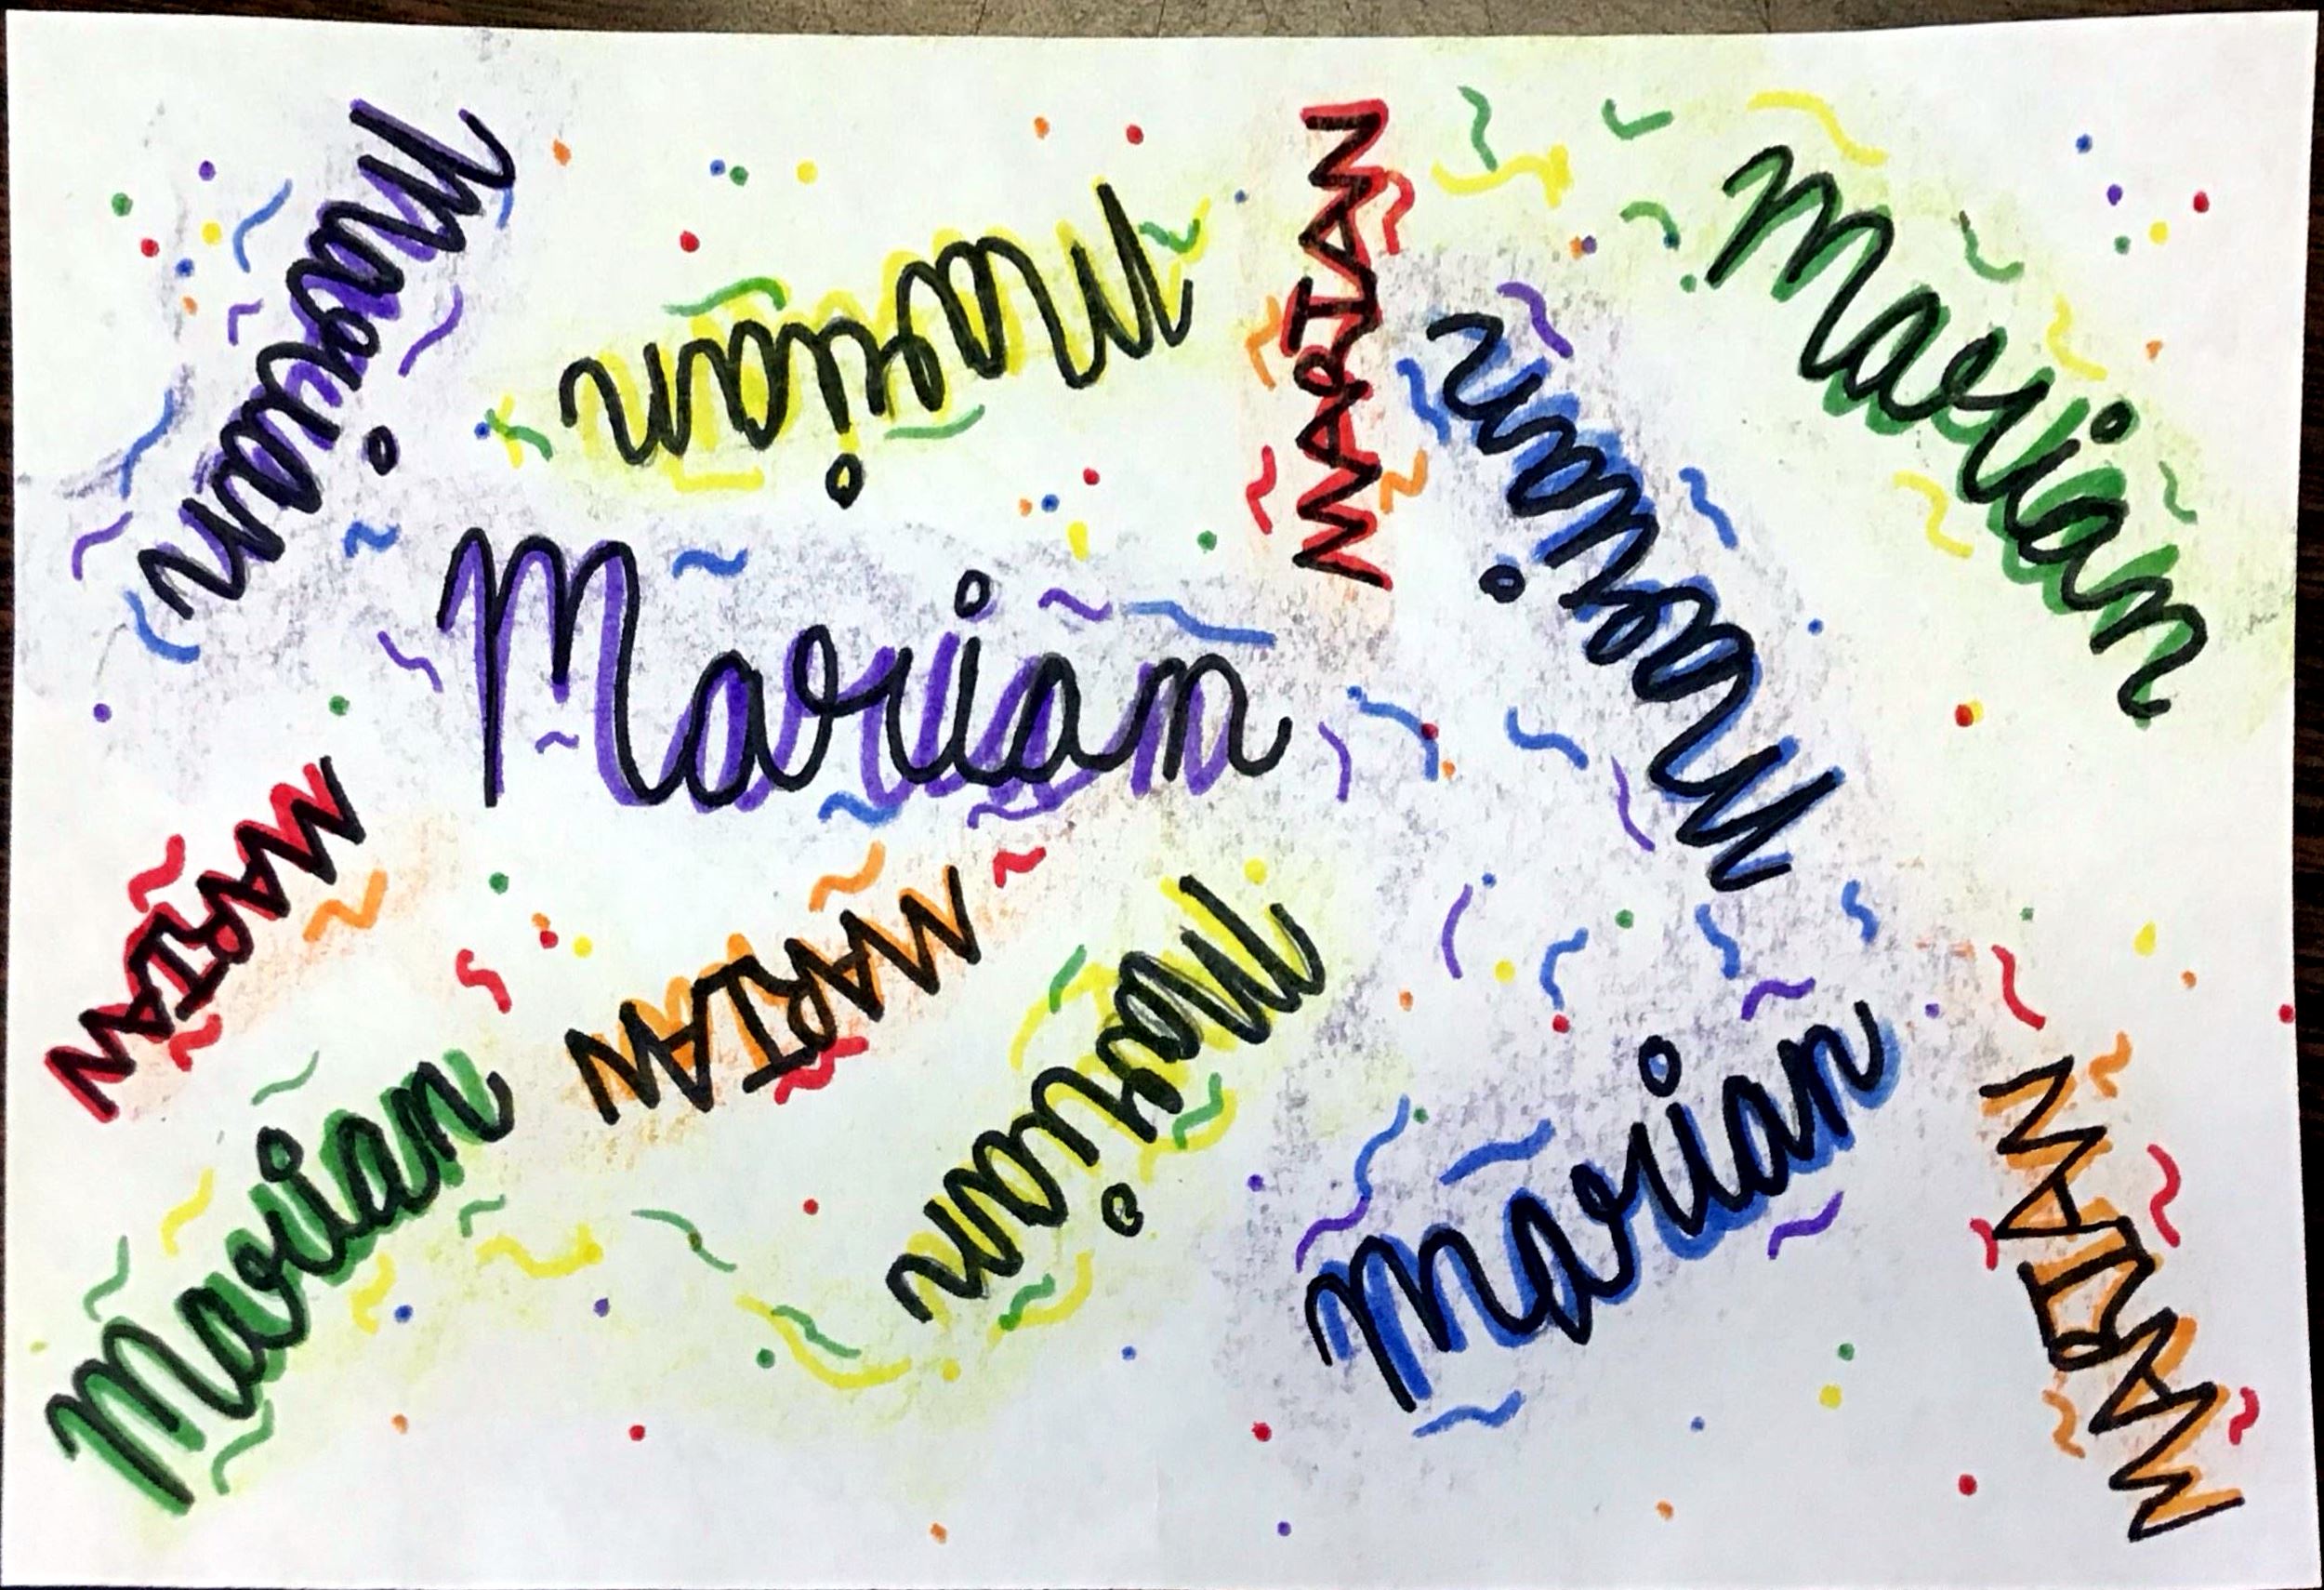 Marian
Marian
MARIAN
Marian
Marian
Marian
MARIAN
MARIAN
Marian
Marian
MARIAN
Marian